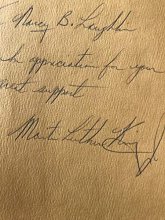 Nancy B. Laughlin
in appreciation for your
support
Martin Luther King